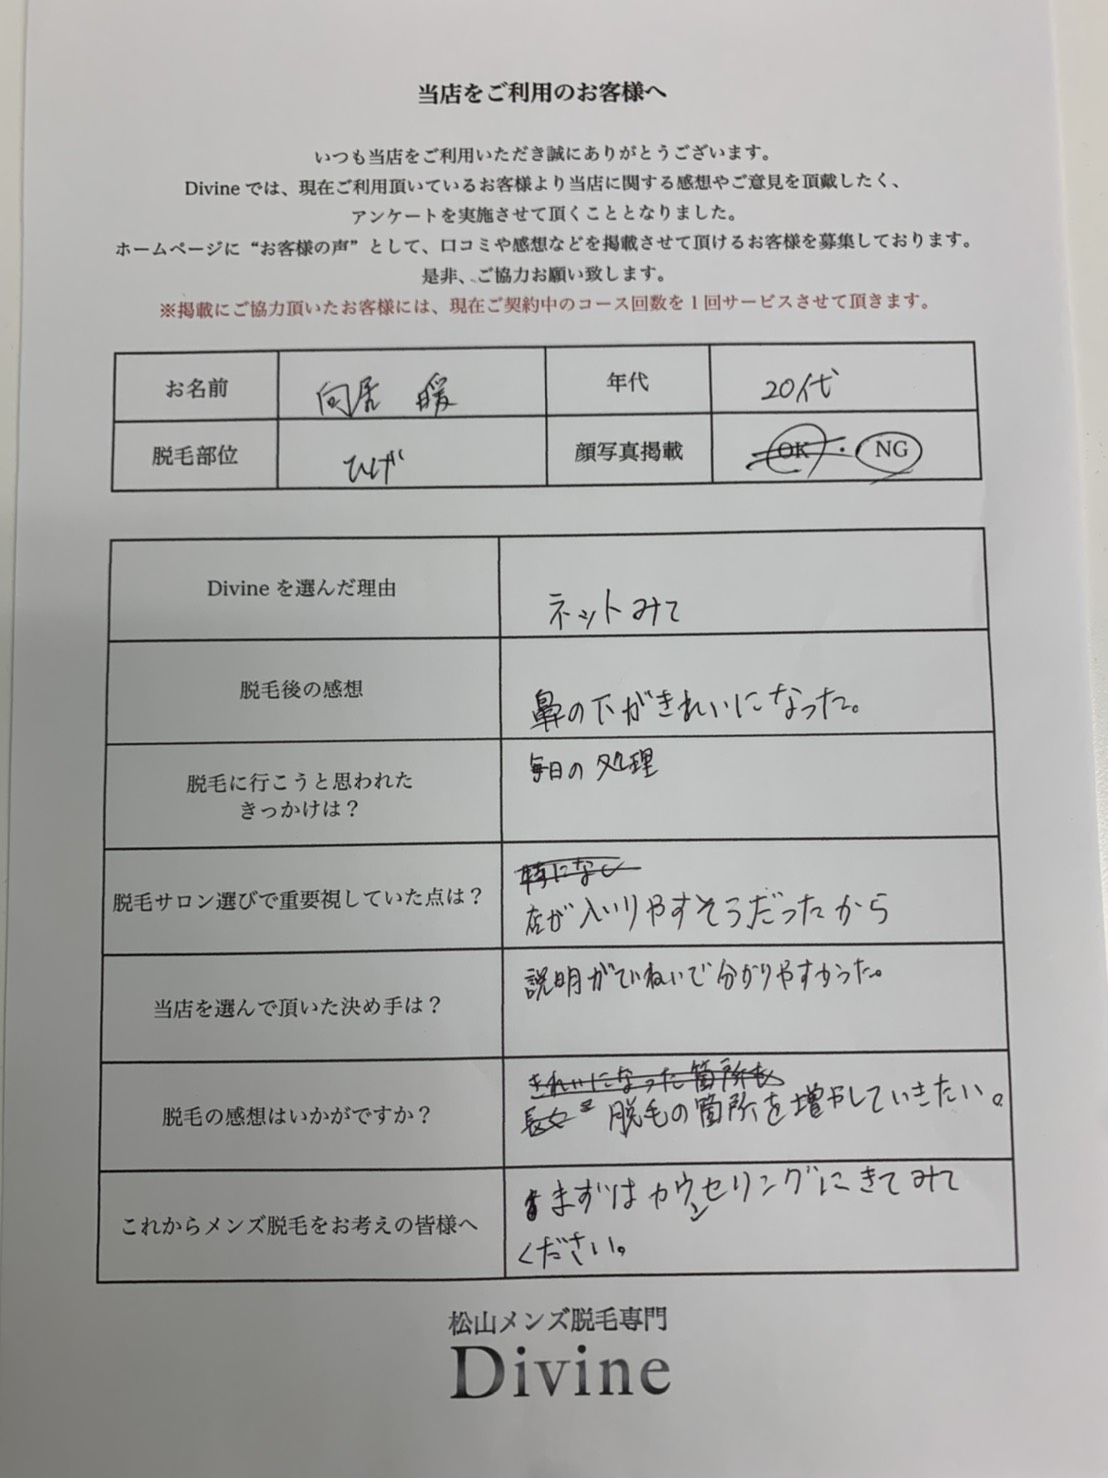 当店をご利用のお客様へ
いつも当店をご利用いただき誠にありがとうございます。
Divineでは、現在ご利用頂いているお客様より当店に関する感想やご意見を頂戴したく、
アンケートを実施させて頂くこととなりました。
ホームページに“お客様の声”として、口コミや感想などを掲載させて頂けるお客様を募集しております。
是非、ご協力お願い致します。
※掲載にご協力頂いたお客様には、現在ご契約中のコース回数を1回サービスさせて頂きます。
お名前 向居 暖 年代 20代
脱毛部位 ひげ 顔写真掲載 OK・NG
Divineを選んだ理由 ネットみて
脱毛後の感想 鼻の下がきれいになった。
脱毛に行こうと思われた
きっかけは？
毎日の処理
特になし
脱毛サロン選びで重要視していた点は？
店が入いりやすそうだったから
当店を選んで頂いた決め手は？ 説明がていねいで分かりやすかった。
きれいになった箇所も
脱毛の感想はいかがですか？ 脱毛の箇所を増やしていきたい。
これからメンズ脱毛をお考えの皆様へ
まずはカウンセリングにきてみて
ください。
松山メンズ脱毛専門
Divine